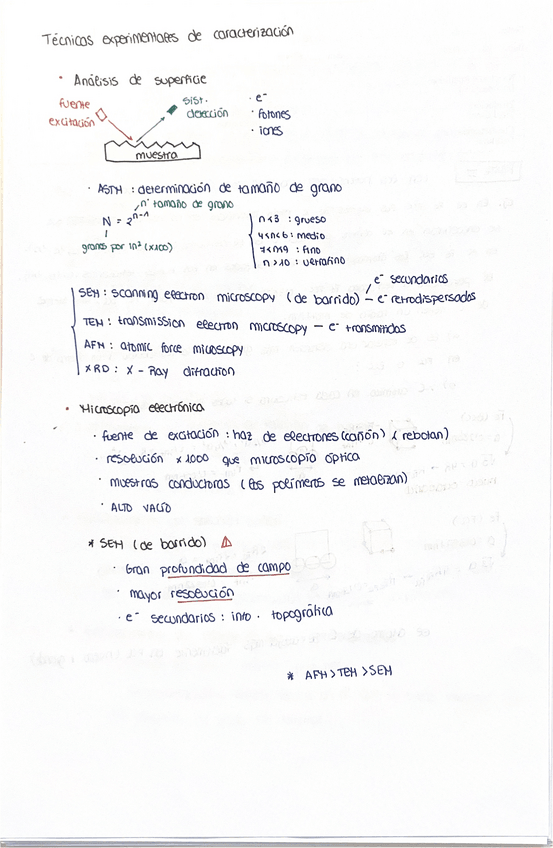 Técnicas experimentales de caracterización
· Análisis de superficie
fuente excitación
sist. detección
muestra
· e⁻
· fotones
· iones
· ASTM : determinación de tamaño de grano
n° tamaño de grano
N = 2ⁿ⁻¹
granos por in² (x100)
n<3 : grueso
4<n<6 : medio
7<n<9 : fino
n>10 : ultrafino
SEM : scanning electron microscopy (de barrido) – e⁻ secundarios
– e⁻ retrodispersados
TEM : transmission electron microscopy – e⁻ transmitidos
AFM : atomic force microscopy
XRD : X-Ray difraction
· Microscopía electrónica
· fuente de excitación : haz de electrones (cañón) (rebotan)
· resolución x1000 que microscopía óptica
· muestras conductoras (los polímeros se metalizan)
· ALTO VACÍO
* SEM (de barrido) ⚠
· Gran profundidad de campo
· mayor resolución
· e⁻ secundarios : info. topográfica
* AFM > TEM > SEM